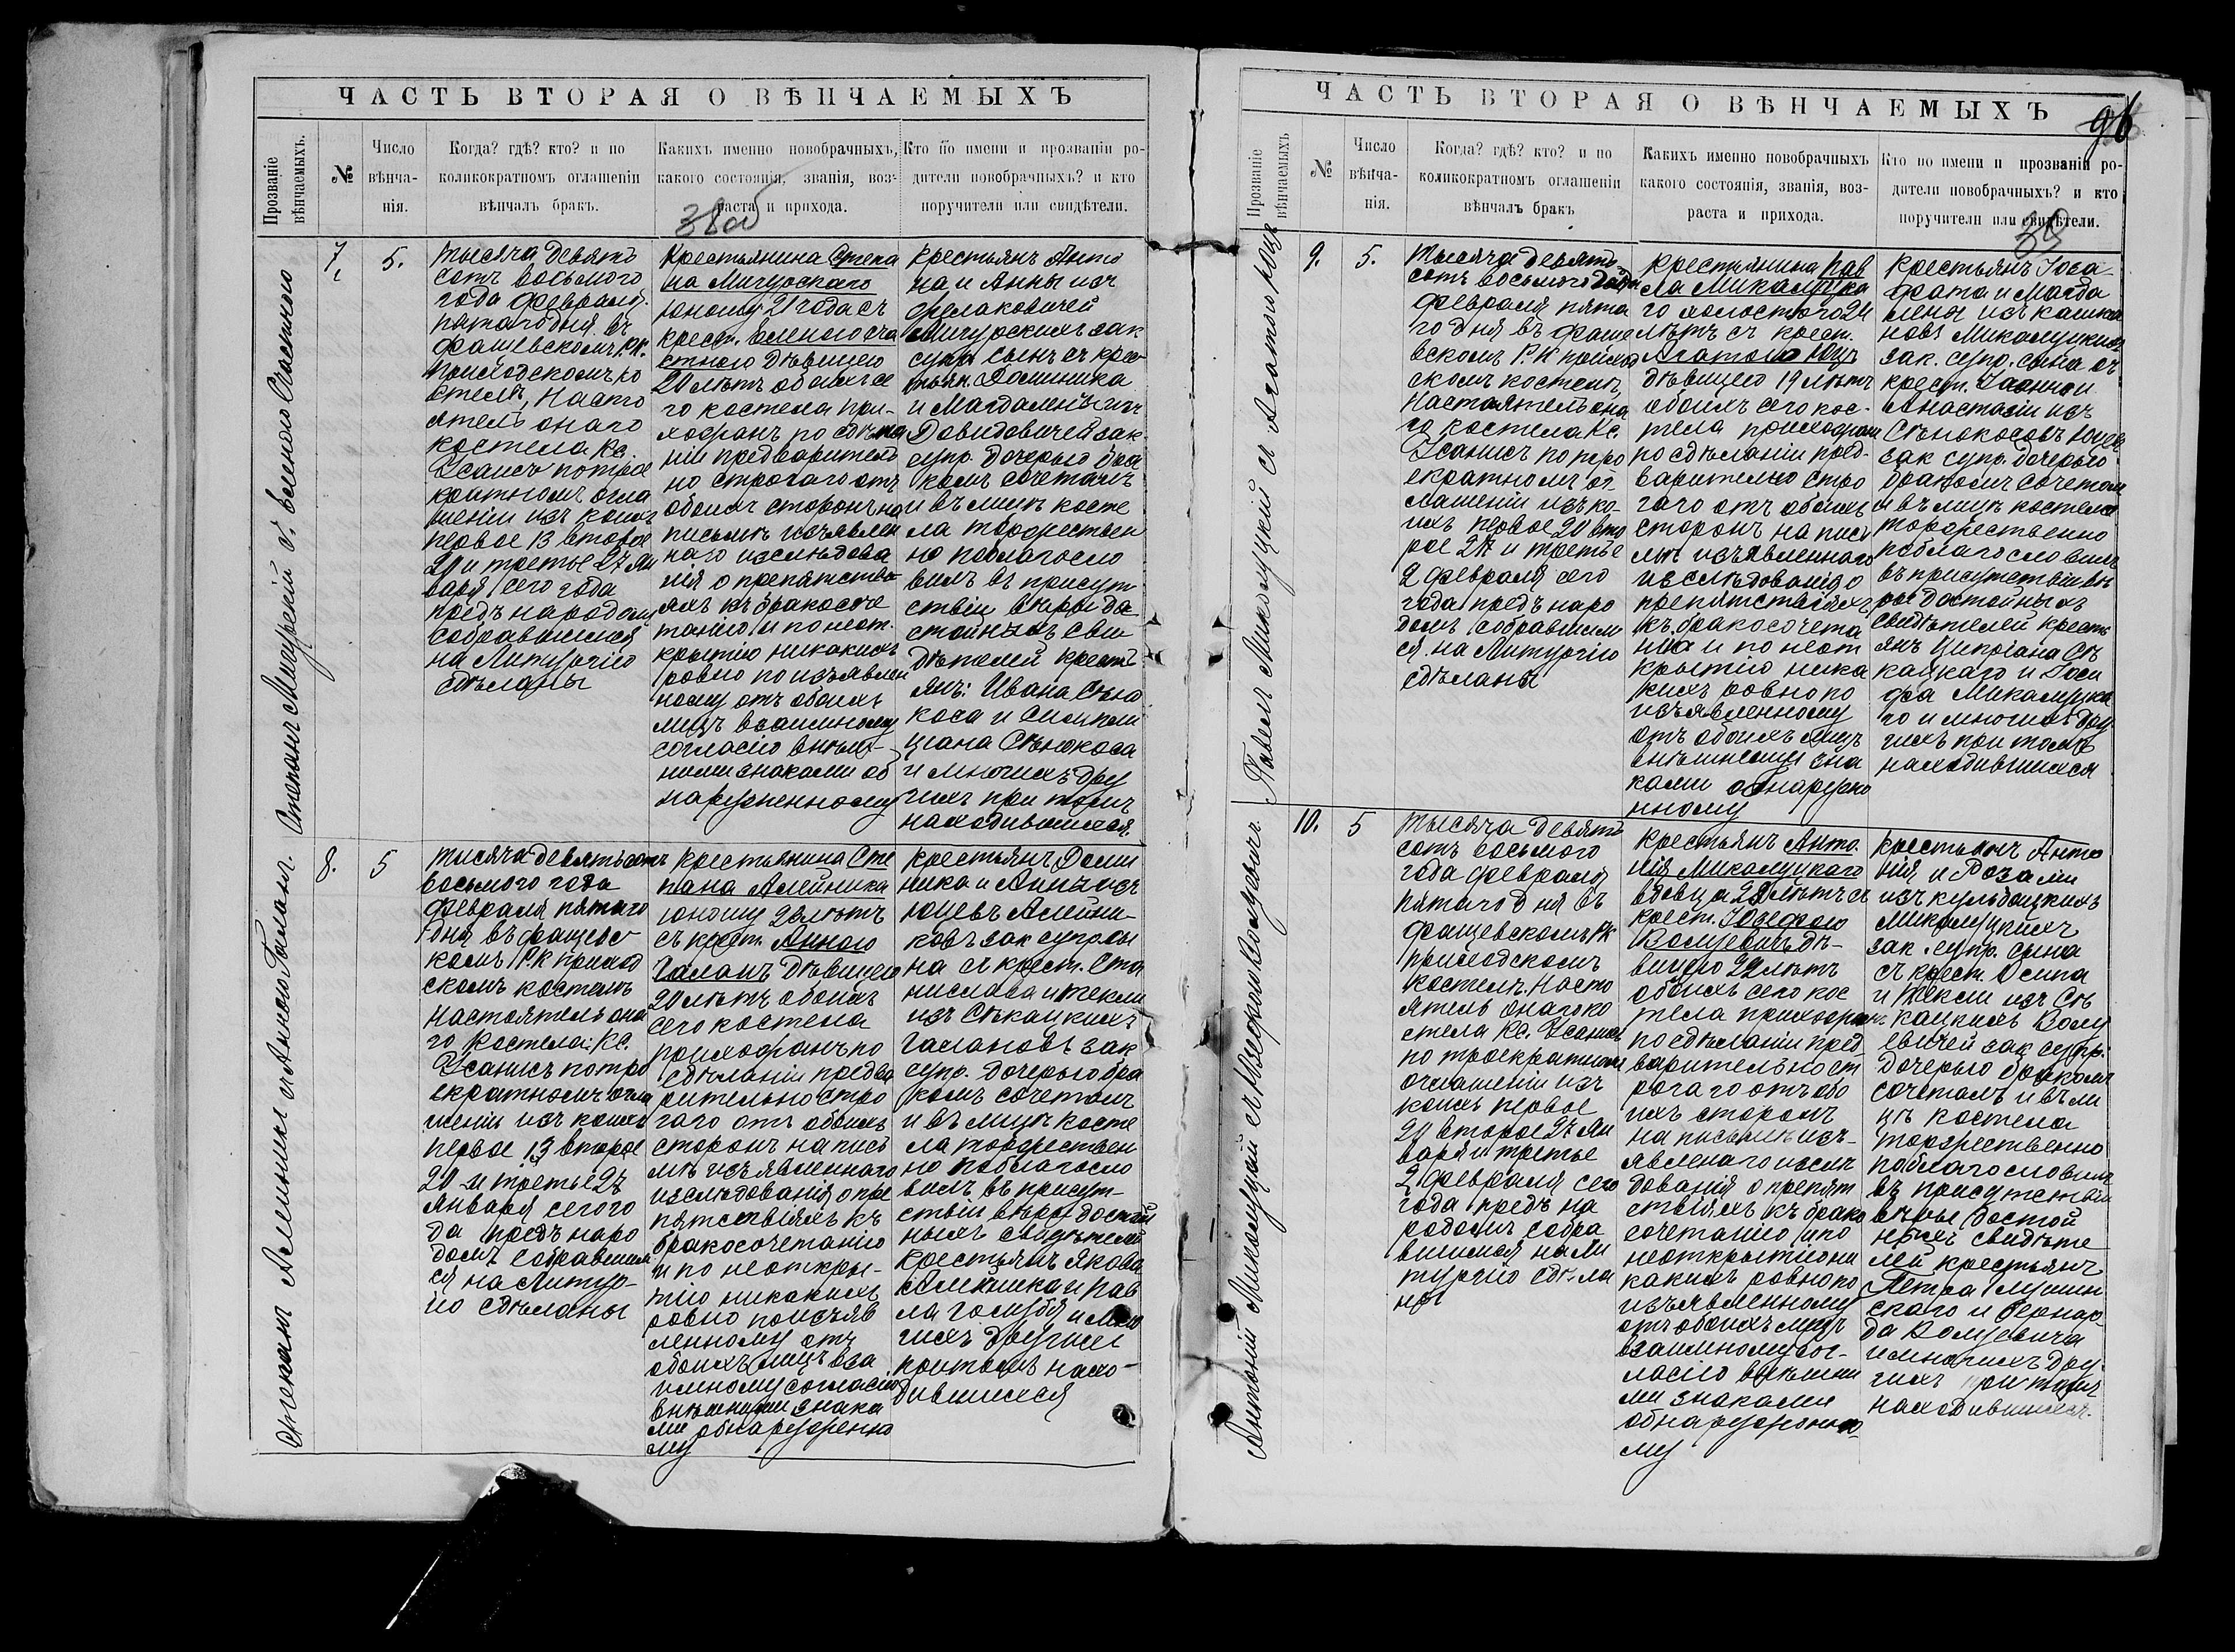 ЧАСТЬ ВТОРАЯ О ВѢНЧАЕМЫХЪ
Прозваніе
вѣнчаемыхъ.
№
Число
вѣнча-
нія.
Когда? гдѣ? кто? и по
коликократномъ оглашеніи
вѣнчалъ бракъ.
Какихъ именно новобрачныхъ,
какого состоянія, званія, воз-
раста и прихода.
Кто по имени и прозваніи ро-
дители новобрачныхъ? и кто
поручители или свидѣтели.
7.
5.
тысяча девять
сотъ восьмого
года февраля
пятаго дня въ
фащевскомъ Р.К.
приходскомъ ко
стелѣ, насто
ятель онаго
костела Кс.
по трое
кратномъ огла
шеніи изъ коихъ
первое 13 второе
20 и третье 27 Ян
варя сего года
предъ народомъ
собравшимся
на Литургію
сдѣланы
Крестьянина Степа
на Мигурскаго
юношу 21 года съ
крест. Еленою Сча
стною дѣвицею
20 лѣтъ обоихъ се
го костела при-
хожанъ по сдѣла
ніи предваритель
но строгаго отъ
обоихъ сторонъ на
письмѣ изъявлен
наго изслѣдова
нія о препятстві
яхъ къ бракосоче
танію и по неот
крытію никакихъ
ровно по изъявлен
ному отъ обоихъ
лицъ взаимному
согласію внѣш-
ними знаками об
наруженному
крестьянъ Анто
на и Анны изъ
Мигурскихъ зак
супр сына съ крес
тьян. Доминика
и Магдалены изъ
Довидовичей зак
супр. дочерью бра
комъ сочеталъ
и въ лицѣ косте
ла торжествен
но поблагосло
вилъ въ присут
ствіи вѣры до
стойныхъ сви
дѣтелей кресть
янъ: Ивана Сѣно
коса и
Сѣнокоса
и многихъ дру
гихъ при томъ
находившихся.
8.
5
тысяча девятьсотъ
восьмого года
февраля пятаго
дня въ фащевс
комъ Р.К приход
скомъ костелѣ
настоятель она
го костела: Кс.
по тро
екратномъ огла
шеніи изъ коихъ
первое 13 второе
20 и третье 27
Января сего го
да предъ наро
домъ собравшим
ся на Литур-
ію сдѣланы
крестьянина Сте
пана Алейника
юношу 23 лѣтъ
съ крест. Анною
Галанъ дѣвицею
20 лѣтъ обоихъ
сего костела
прихожанъ по
сдѣланіи предва
рительно стро
гаго отъ обоихъ
сторонъ на пись
мѣ изъявленнаго
изслѣдованія о пре
пятствіяхъ къ
бракосочетанію
и по неоткры-
тію никакихъ
ровно по изъяв
ленному отъ
обоихъ лицъ вза
имному согласію
внѣшними знака
ми обнаруженно
му
крестьянъ Доми
ника и Анны изъ
Юцевъ Алейни-
ковъ зак супр сы
на съ крест. Ста
нислава и Текли
изъ Сѣкацкихъ
Галановъ зак
супр. дочерью бра
комъ сочеталъ
и въ лицѣ косте
ла торжествен
но поблагосло
вилъ въ присут-
ствіи вѣры достой
ныхъ свидѣтелей
крестьянъ Якова
Алейника и Пав
ла Голубя и мно
гихъ другихъ
притомъ нахо-
дившихся
Степанъ Мигурскій съ Еленою Счастною
Степанъ Алейникъ и Анною Галанъ.
ЧАСТЬ ВТОРАЯ О ВѢНЧАЕМЫХЪ
96
Прозваніе
вѣнчаемыхъ
№
Число
вѣнча-
нія.
Когда? гдѣ? кто? и по
коликократномъ оглашеніи
вѣнчалъ бракъ
Какихъ именно новобрачныхъ
какого состоянія, званія, воз-
раста и прихода.
Кто по имени и прозваніи ро-
дители новобрачныхъ? и кто
поручители или свидѣтели.
39
9.
5.
тысяча девять
сотъ восьмого года
февраля пята
го дня въ фаще
вскомъ Р.К приход
скомъ костелѣ
настоятель она
го костела Кс.
по трое
екратномъ ог
лашеніи изъ ко-
ихъ первое 20 вто
рое 27 и третье
2 февраля сего
года предъ наро
домъ собравшим
ся на Литургію
сдѣланы
крестьянина Пав
ла Микалуцка
го холостого 24
лѣтъ съ крест.
Агатою Юцъ
дѣвицею 19 лѣтъ
обоихъ сего кос-
тела прихожан
по сдѣланіи пред-
варительно стро
гаго отъ обоихъ
сторонъ на пись
мѣ изъявленнаго
изслѣдованія о
препятствіяхъ
къ бракосочета
нію и по неот
крытію ника
кихъ ровно по
изъявленному
отъ обоихъ лицъ
внѣшними зна
ками обнаруже
нному
крестьянъ Іоса
фата и Магда
лены изъ Кашка
новъ Микалуцкихъ
зак. супр. сына съ
крест.
Анастасіи изъ
Сѣнокосовъ Юцевъ
зак супр. дочерью
бракомъ сочеталъ
и въ лицѣ костела
торжественно
поблагословилъ
въ присутствіи вѣ
ры достойныхъ
свидѣтелей кресть
янъ Ципріана Сѣ
кацкаго и Іоси
фа Микалуцка
го и многихъ дру
гихъ при томъ
находившихся
10.
5
тысяча девять
сотъ восьмого
года февраля
пятаго дня въ
фащевскомъ Р.К
приходскомъ
костелѣ. Насто
ятель онаго ко
стела Кс.
по троекратномъ
оглашеніи изъ
коихъ первое
20 второе 27 Ян
варя и третье
2 февраля сего
года предъ на
родомъ собра
вшимся на Ли
тургію сдѣла
ны
крестьянъ Анто
нія Микалуцкаго
вдовца 28 лѣтъ съ
крест. Юзефою
Волуевичъ дѣ-
вицею 22 лѣтъ
обоихъ сего кос
тела прихожанъ
по сдѣланіи пред
варительно ст
рогаго отъ обо
ихъ сторонъ
на письмѣ изъ-
явленаго изслѣ
дованія о препят
ствіяхъ къ брако
сочетанію и по
неоткрытію ни
какихъ ровно по
изъявленному
отъ обоихъ лицъ
взаимному сог-
ласію внѣшни
ми знаками
обнаруженно-
му
крестьянъ Анто
нія и Розаліи
изъ Кульбацкихъ
Микалуцкихъ
зак. супр. сына
съ крест. Осипа
и Текли изъ Сѣ
кацкихъ Волу
евичей зак супр.
дочерью бракомъ
сочеталъ и въ ли
цѣ костела
торжественно
поблагословилъ
въ присутствіи
вѣры достой
ныхъ свидѣте
лей крестьянъ
Петра Мушин
скаго и Бернар-
да Волуевича
и многихъ дру-
гихъ при томъ
находившихся.
Павелъ Микалуцкій съ Агатою Юцъ
Антоній Микалуцкій съ Юзефою Волуевичъ.